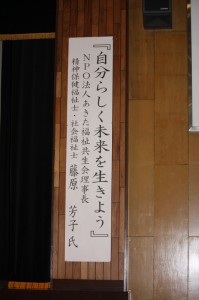 『自分らしく未来を生きよう』
NPO法人あきた福祉共生会理事長
精神保健福祉士・社会福祉士 藤原 芳子 氏